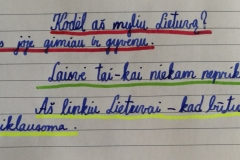 Kodėl aš myliu Lietuvą?
s joje gimiau ir gyvenu.
Laisvė tai - kai niekam neprik
Aš linkiu Lietuvai - kad būtų
iklausoma.